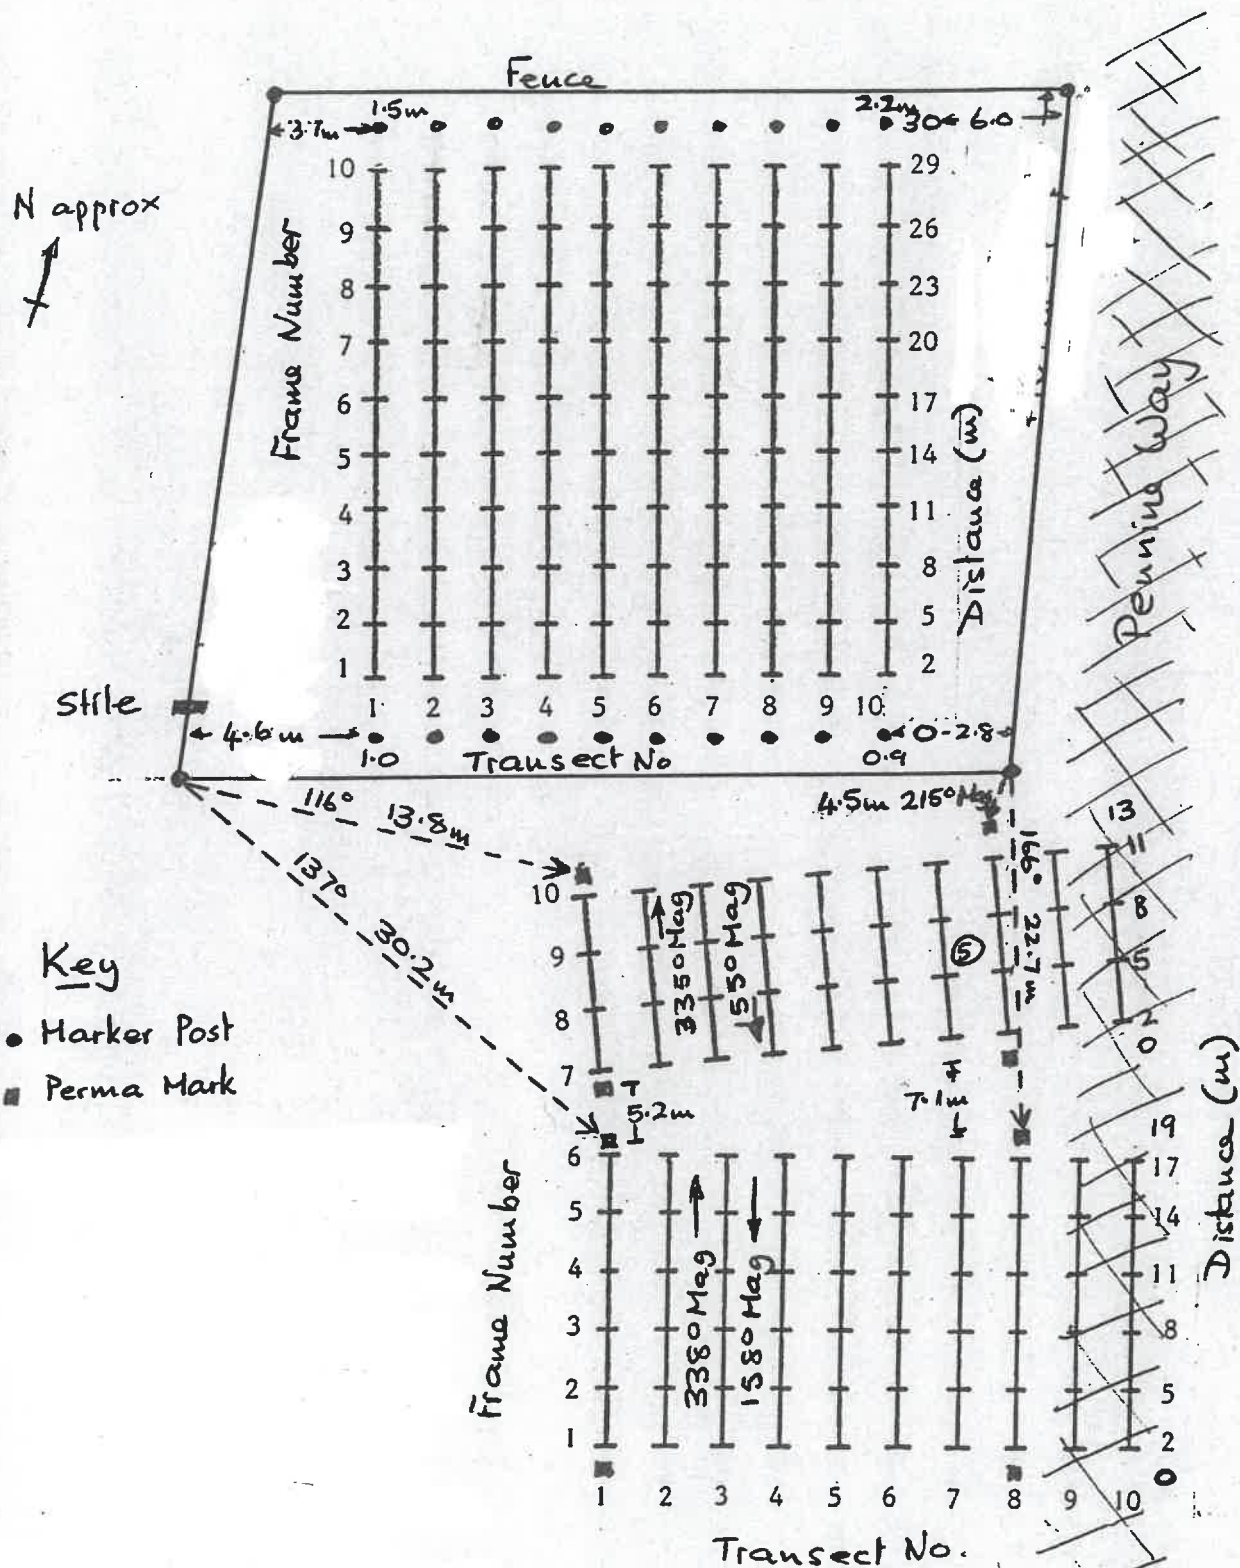 Fence
1.5m
2.2m
3.7m
30
6.0
N approx
Frame Number
10
9
8
7
6
5
4
3
2
1
29
26
23
20
17
14
11
8
5
2
Distance (m)
Pennine Way
Stile
1 2 3 4 5 6 7 8 9 10
4.6m
0-2.8
1.0
Transect No
0.9
116° 13.8m
4.5m 215° Mag
137° 30.2m
166° 22.7m
13
11
8
5
2
0
10
9
8
7
3350 Mag
1550 Mag
5
Key
Marker Post
Perma Mark
5.2m
7.1m
Frame Number
6
5
4
3
2
1
3380 Mag
1580 Mag
19
17
14
11
8
5
2
0
Distance (m)
1 2 3 4 5 6 7 8 9 10
Transect No.